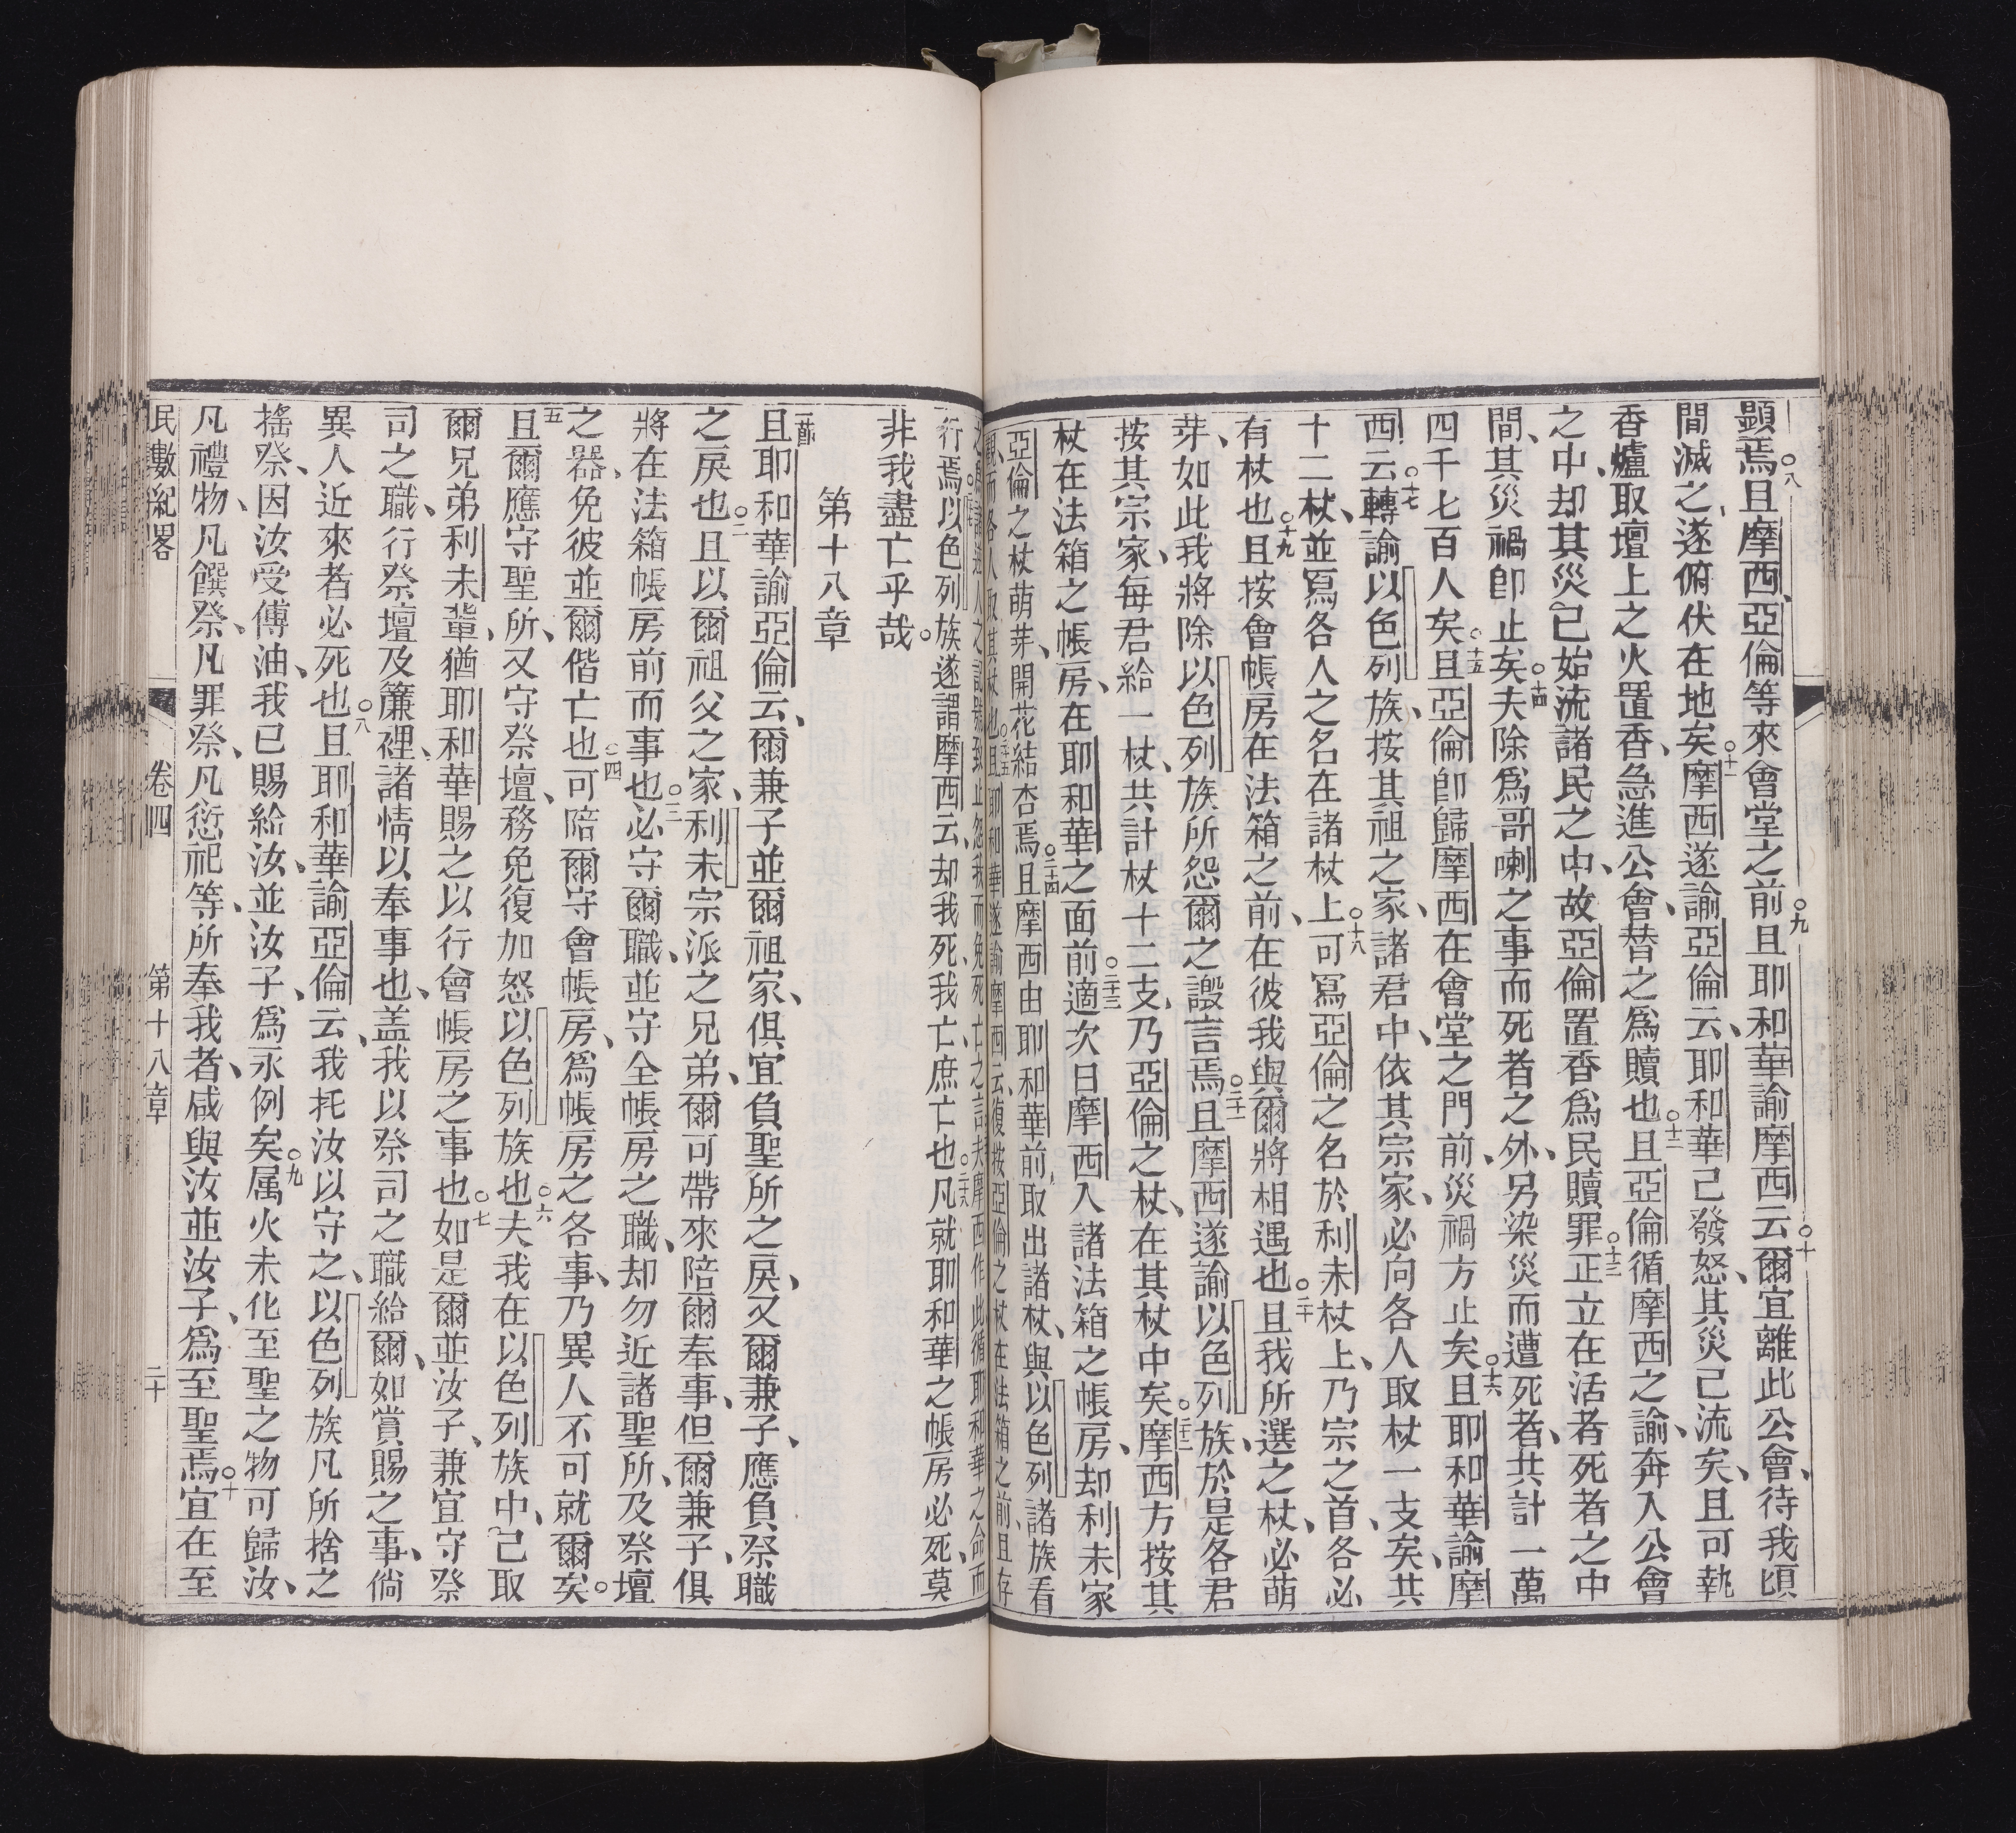 顯焉○八且摩西、亞倫等來會堂之前○九且耶和華諭摩西云○十爾宜離此公會、待我頃
間滅之、遂俯伏在地矣○十一摩西遂諭亞倫云、耶和華已發怒、其災已流矣、且可執
香爐取壇上之火置香、急進公會、替之爲贖也○十二且亞倫循摩西之諭、奔入公會
之中、却其災已始流諸民之中、故亞倫置香爲民贖罪○十三正立在活者死者之中
間、其災禍卽止矣○十四夫除爲哥喇之事而死者之外、另染災而遭死者、共計一萬
四千七百人矣○十五且亞倫卽歸摩西在會堂之門前、災禍方止矣○十六且耶和華諭摩
西云○十七轉諭以色列族、按其祖之家、諸君中、依其宗家、必向各人取杖一支矣、共
十二杖、並寫各人之名在諸杖上○十八可寫亞倫之名於利未杖上、乃宗之首、各必
有杖也○十九且按會帳房在法箱之前、在彼我與爾將相遇也○二十且我所選之杖、必萌
芽、如此我將除以色列族所怨爾之譭言焉○二十一且摩西遂諭以色列族、於是各君
按其宗家、每君給一杖、共計杖十二支、乃亞倫之杖、在其杖中矣○二十二摩西方按其
杖在法箱之帳房、在耶和華之面前○二十三適次日摩西入諸法箱之帳房、却利未家
亞倫之杖萌芽、開花結杏焉○二十四且摩西由耶和華前取出諸杖、與以色列諸族看
觀、而各人取其杖也○二十五且耶和華遂諭摩西云、復按亞倫之杖在法箱之前、且存
之諸逆人之記號、致止怨我而免死亡之言、夫摩西作此循耶和華之命而
行焉○以色列族遂謂摩西云、却我死、我亡、庶亡也○二十八凡就耶和華之帳房必死、莫
非我盡亡乎哉。
第十八章
一節且耶和華諭亞倫云、爾兼子並爾祖家、俱宜負聖所之戾、又爾兼子、應負祭職
之戾也○二且以爾祖父之家、利未宗派之兄弟、爾可帶來陪爾奉事、但爾兼子、俱
將在法箱帳房前而事也○三必守爾職、並守全帳房之職、却勿近諸聖所、及祭壇
之器、免彼並爾偕亡也○四可陪爾守會帳房、爲帳房之各事、乃異人不可就爾矣○
五且爾應守聖所、又守祭壇、務免復加怒以色列族也○六夫我在以色列族中、已取
爾兄弟利未輩、猶耶和華賜之以行會帳房之事也○七如是爾並汝子、兼宜守祭
司之職、行祭壇及簾裡、諸情以奉事也、盖我以祭司之職給爾、如賞賜之事、倘
異人近來者必死也○八且耶和華諭亞倫云、我托汝以守之、以色列族凡所捨之
搖祭、因汝受傅油、我已賜給汝、並汝子、爲永例矣○九属火未化至聖之物可歸汝、
凡禮物、凡饌祭、凡罪祭、凡愆祀等、所奉我者、咸與汝並汝子、爲至聖焉○十宜在至
民數紀畧 卷四 第十八章 二十